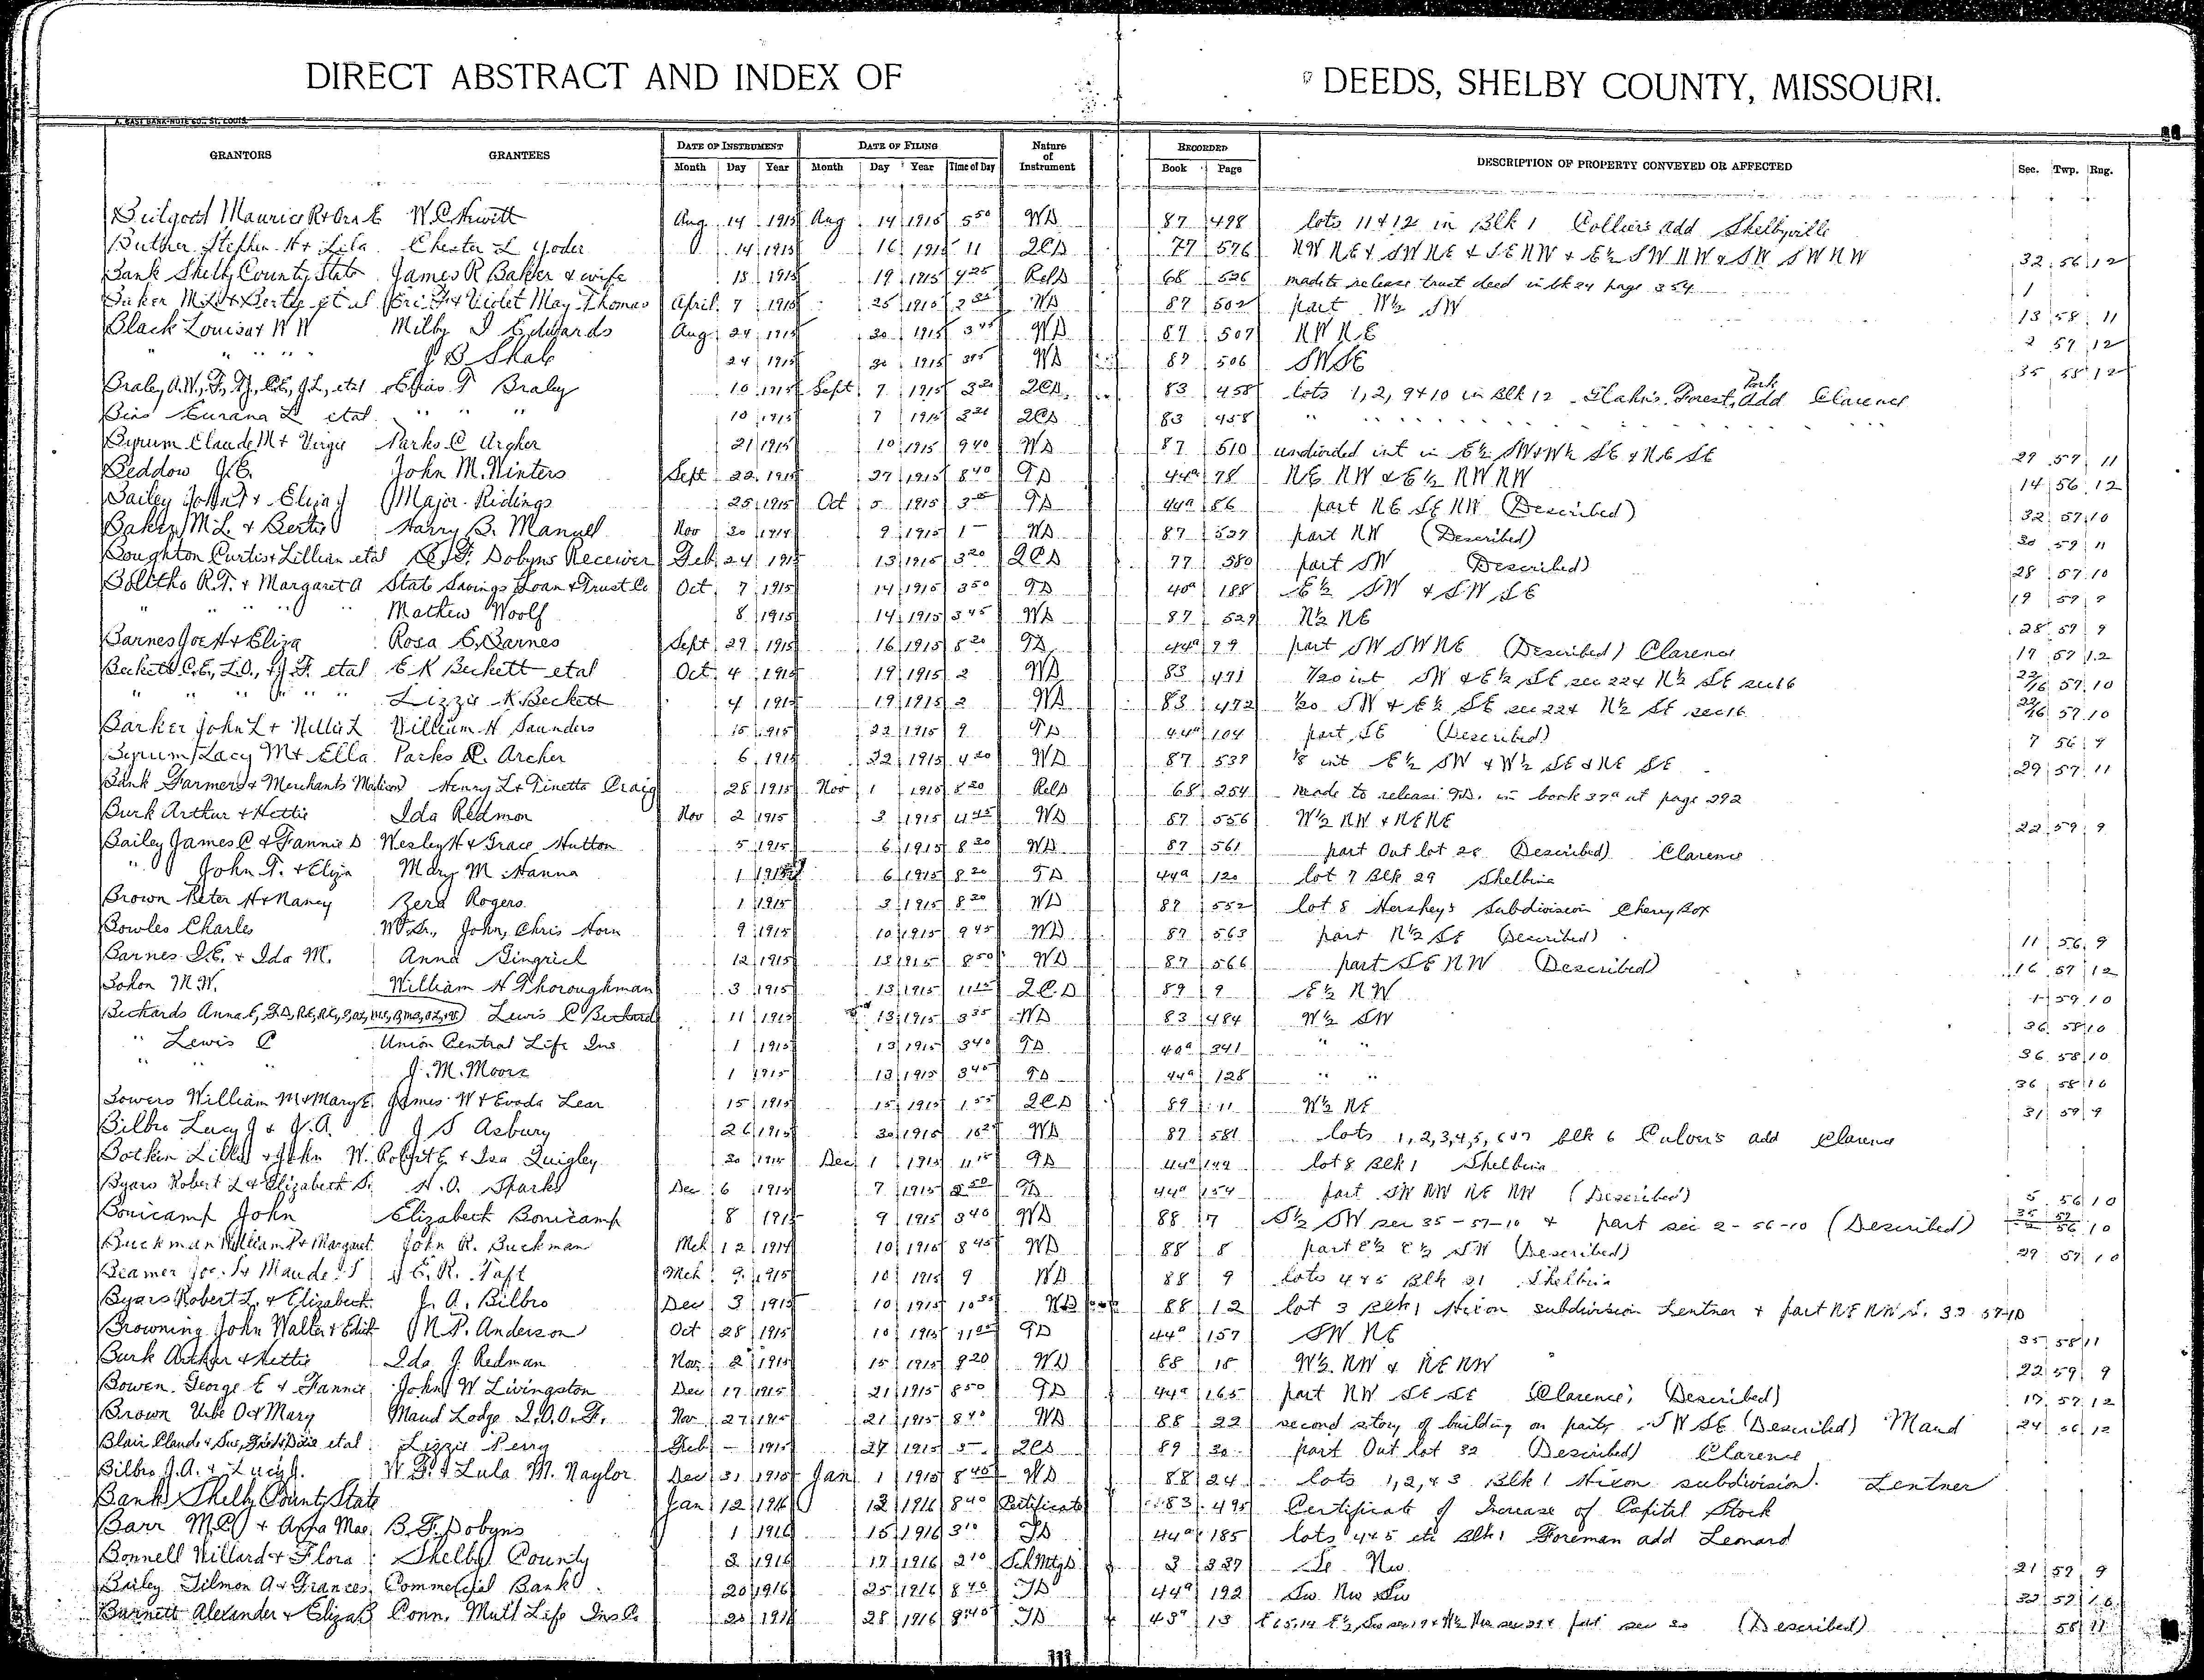 DIRECT ABSTRACT AND INDEX OF DEEDS, SHELBY COUNTY, MISSOURI.
A. GAST BANK-NOTE CO., ST. LOUIS.
GRANTORS GRANTEES DATE OF INSTRUMENT DATE OF FILING Nature of Instrument RECORDED DESCRIPTION OF PROPERTY CONVEYED OR AFFECTED Sec. Twp. Rng.
Month Day Year Month Day Year Time of Day Book Page
Maurice R & Ora E W. C. Hewitt Aug 14 1915 Aug 14 1915 5 50 WD 87 498 lots 11 & 12 in Blk 1 Colliers add Shelbyville
Stephen H & Lila Chester L Yoder 14 1915 16 1915 11 QCD 77 576 NW NE & SW NE & SE NW & E½ SW NW & SW SW NW 32 56 12
Bank Shelby County State James R Baker & wife 18 1915 19 1915 4 25 RelD 68 526 made to release trust deed in bk 24 page 354
Baker M L & Bertie et al & Violet May Thomas April 7 1915 25 1915 WD 87 502 part W½ SW 13 58 11
Black Louisa & W W Milby Edwards Aug 24 1915 30 1915 3 45 WD 87 507 NW NE 2 57 12
" " " " J B Shale 24 1915 30 1915 WD 87 506 SW SE 35 58 12
Braley A.W., et al Braley 10 1915 Sept 7 1915 3 20 QCD 83 458 lots 1, 2, 9 & 10 in Blk 12 Forest Park add Clarence
Eurana L et al " " " 10 1915 7 1915 3 20 QCD 83 458 " " "
Byrum Claude M & Virgie Parks C Archer 21 1915 10 1915 9 40 WD 87 510 undivided int in E½ SW & W½ SE & NE SE 29 57 11
Beddow J. E. John M. Winters Sept 22 1915 27 1915 8 40 TD 44a 78 NE NW & E½ NW NW 14 56 12
Bailey John T & Eliza J Major Ridings 25 1915 Oct 5 1915 TD 44a 86 part NE SE NW (Described) 32 57 10
Baker M L & Bertie Harry B. Manuel Nov 30 1914 9 1915 1 — WD 87 529 part NW (Described) 30 59 11
Boughton Curtis & Lillian et al Dobyns Receiver Feb 24 1915 13 1915 3 20 QCD 77 580 part SW (Described) 28 57 10
Bolitho R.T. & Margaret A State Savings Loan & Trust Co Oct 7 1915 14 1915 3 50 TD 40a 188 E½ SW & SW SE 19 59 9
" " " " Mathew Woolf 8 1915 14 1915 3 45 WD 87 529 N½ NE 28 59 9
Barnes Joe H & Eliza Rosa E. Barnes Sept 29 1915 16 1915 8 20 TD 44a 99 part SW SW NE (Described) Clarence 17 57 12
Beckett C.E., L.O., & J. F. et al E K Beckett et al Oct 4 1915 19 1915 2 WD 83 471 1/20 int SW & E½ SE sec 22 & N½ SE sec 16 22/16 57 10
" " " " " Lizzie K Beckett 4 1915 19 1915 2 WD 83 472 1/20 SW & E½ SE sec 22 & N½ SE sec 16 22/16 57 10
Barker John L & Nellie L William H Saunders 15 1915 22 1915 9 TD 44a 104 part SE (Described) 7 56 9
Byrum Lacy M & Ella Parks C. Archer 6 1915 22 1915 4 20 WD 87 539 1/8 int E½ SW & W½ SE & NE SE 29 57 11
Bank Farmers & Merchants Henry L & Tinetta Craig 28 1915 Nov 1 1915 8 20 RelD 68 254 made to release TD. in book 37a at page 292
Burk Arthur & Hettie Ida Redmon Nov 2 1915 3 1915 4 45 WD 87 556 W½ NW & NE NE 22 59 9
Bailey James C & Fannie D Wesley H & Grace Hutton 5 1915 6 1915 8 20 WD 87 561 part Out lot 28 (Described) Clarence
" John T. & Eliza Mary M Hanna 1 1915 6 1915 8 20 TD 44a 120 lot 7 Blk 29 Shelbina
Brown Peter H & Nancy Zera Rogers 1 1915 3 1915 8 20 WD 87 552 lot 8 Hershey's Subdivision Cherry Box
Bowles Charles Wm Sr., John, Chris Horn 9 1915 10 1915 9 45 WD 87 563 part N½ SE (Described) 11 56 9
Barnes & Ida M. Anna Gingrich 12 1915 13 1915 8 50 WD 87 566 part SE NW (Described) 16 57 12
Bohon M.W. William H Thoroughman 3 1915 13 1915 11 15 Q.C.D 89 9 E½ NW 1 59 10
Bechards Anna E, Lewis C Bechard 11 1915 13 1915 3 35 WD 83 484 W½ SW 36 58 10
" Lewis C Union Central Life Ins 1 1915 13 1915 3 40 TD 40a 341 " " 36 58 10
" " " J. M. Moore 1 1915 13 1915 3 40 TD 44a 128 " " 36 58 10
Bowers William M & Mary E. James W & Evoda Lear 15 1915 15 1915 1 55 QCD 89 11 W½ NE 31 59 9
Bilbro Lucy J & J. A. J S Asbury 26 1915 30 1915 WD 87 581 lots 1, 2, 3, 4, 5, 6 & 7 blk 6 Culver's add Clarence
Botkin & John W. Robert E & Isa Quigley 30 1915 Dec 1 1915 11 15 TD 44a 149 lot 8 Blk 1 Shelbina
Byars Robert L & Elizabeth S. H. O. Sparks Dec 6 1915 7 1915 8 50 TD 44a 154 part SW NW NE NW (Described) 5 56 10
Bonicamp John Elizabeth Bonicamp 8 1915 9 1915 3 40 WD 88 7 S½ SW sec 35-57-10 & part sec 2-56-10 (Described) 35 57 2 56 10
Buckman William P & Margaret John R. Buckman Mch 12 1914 10 1915 8 45 WD 88 8 part E½ E½ SW (Described) 29 57 10
Beamer Joe S & Maude S E. R. Taft Mch 9 1915 10 1915 9 WD 88 9 lots 4 & 5 Blk 21 Shelbina
Byars Robert L. & Elizabeth J. A. Bilbro Dec 3 1915 10 1915 10 35 WD 88 12 lot 3 Blk 1 Hixon subdivision Lentner & part NE NW S. 33 57-10
Browning John Walter & Edith N. P. Anderson Oct 28 1915 10 1915 11 05 TD 44a 157 SW NE 35 58 11
Burk Arthur & Hettie Ida J. Redman Nov 2 1915 15 1915 8 20 WD 88 18 W½ NW & NE NW 22 59 9
Bowen George E & Fannie John W Livingston Dec 17 1915 21 1915 8 50 TD 44a 165 part NW SE SE (Clarence) (Described) 17 57 12
Brown Urbe O & Mary Maud Lodge I.O.O.F. Nov 27 1915 21 1915 8 40 WD 88 22 second story of building on part SW SE (Described) Maud 24 56 12
Blair Claude & Sue, et al Lizzie Perry Feb — 1915 27 1915 5 — QCD 89 20 part Out lot 32 (Described) Clarence
Bilbro J.A. & Lucy J. & Lula M. Naylor Dec 31 1915 Jan 1 1915 8 45 WD 88 24 lots 1, 2, & 3 Blk 1 Hixon subdivision Lentner
Bank Shelby County State Jan 12 1916 12 1916 8 40 Certificate 83 495 Certificate of Increase of Capital Stock
Barr M.C. & Anna Mae B. F. Dobyns 1 1916 15 1916 3 10 TD 44a 185 lots 4 & 5 etc Blk 1 Foreman add Leonard
Bonnell Willard & Flora Shelby County 3 1916 17 1916 2 10 Sch Mtg 3 337 Se Nw 21 59 9
Bailey Tilmon A & Frances Commercial Bank 20 1916 25 1916 8 40 TD 44a 192 Sw Nw Sw
Burnett Alexander & Eliza B Conn. Mutl Life Ins Co 20 1916 28 1916 8 40 TD 43a 13 part sec 20 (Described) 58 11